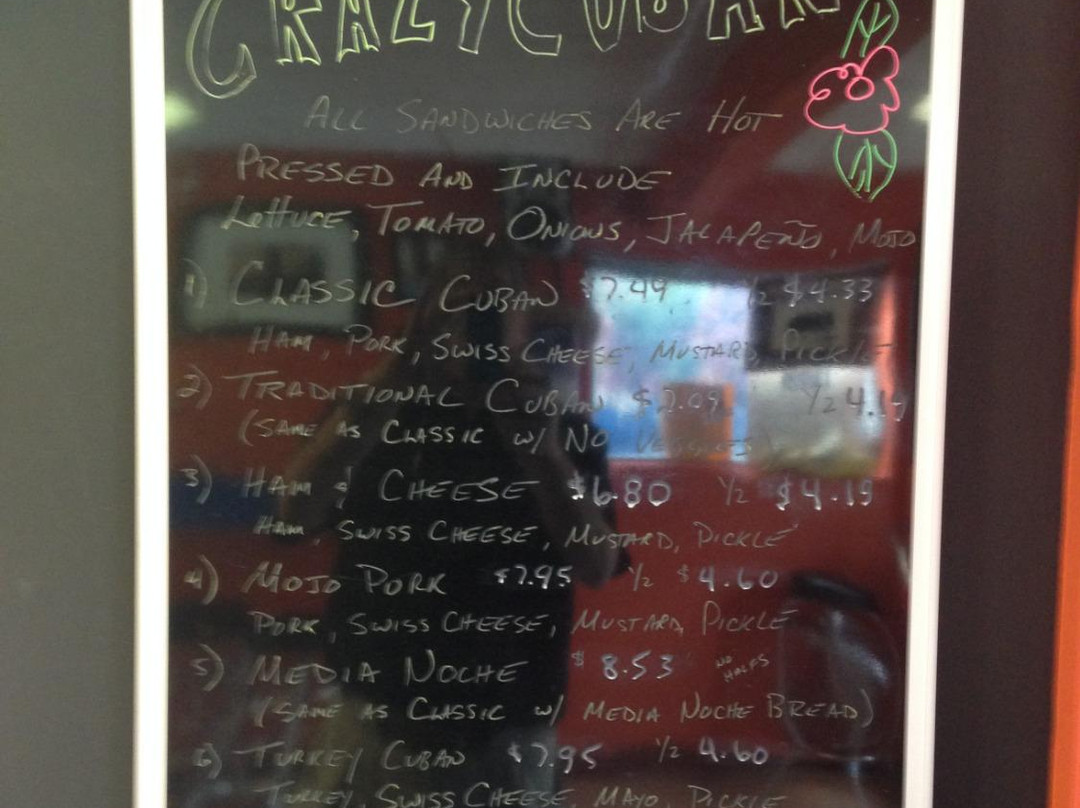 CRAZY CUBAN
ALL SANDWICHES ARE HOT
PRESSED AND INCLUDE
LETTUCE, TOMATO, ONIONS, JALAPEÑO, MOJO
1) CLASSIC CUBAN $7.49 1/2 $4.33
HAM, PORK, SWISS CHEESE, MUSTARD, PICKLE
2) TRADITIONAL CUBAN $7.09 1/2
(SAME AS CLASSIC W/ NO VEGGIES)
3) HAM & CHEESE $6.80 1/2 $4.19
HAM, SWISS CHEESE, MUSTARD, PICKLE
4) MOJO PORK $7.95 1/2 $4.60
PORK, SWISS CHEESE, MUSTARD, PICKLE
5) MEDIA NOCHE $8.53 NO HALFS
(SAME AS CLASSIC W/ MEDIA NOCHE BREAD)
6) TURKEY CUBAN $7.95 1/2 4.60
TURKEY, SWISS CHEESE, MAYO, PICKLE